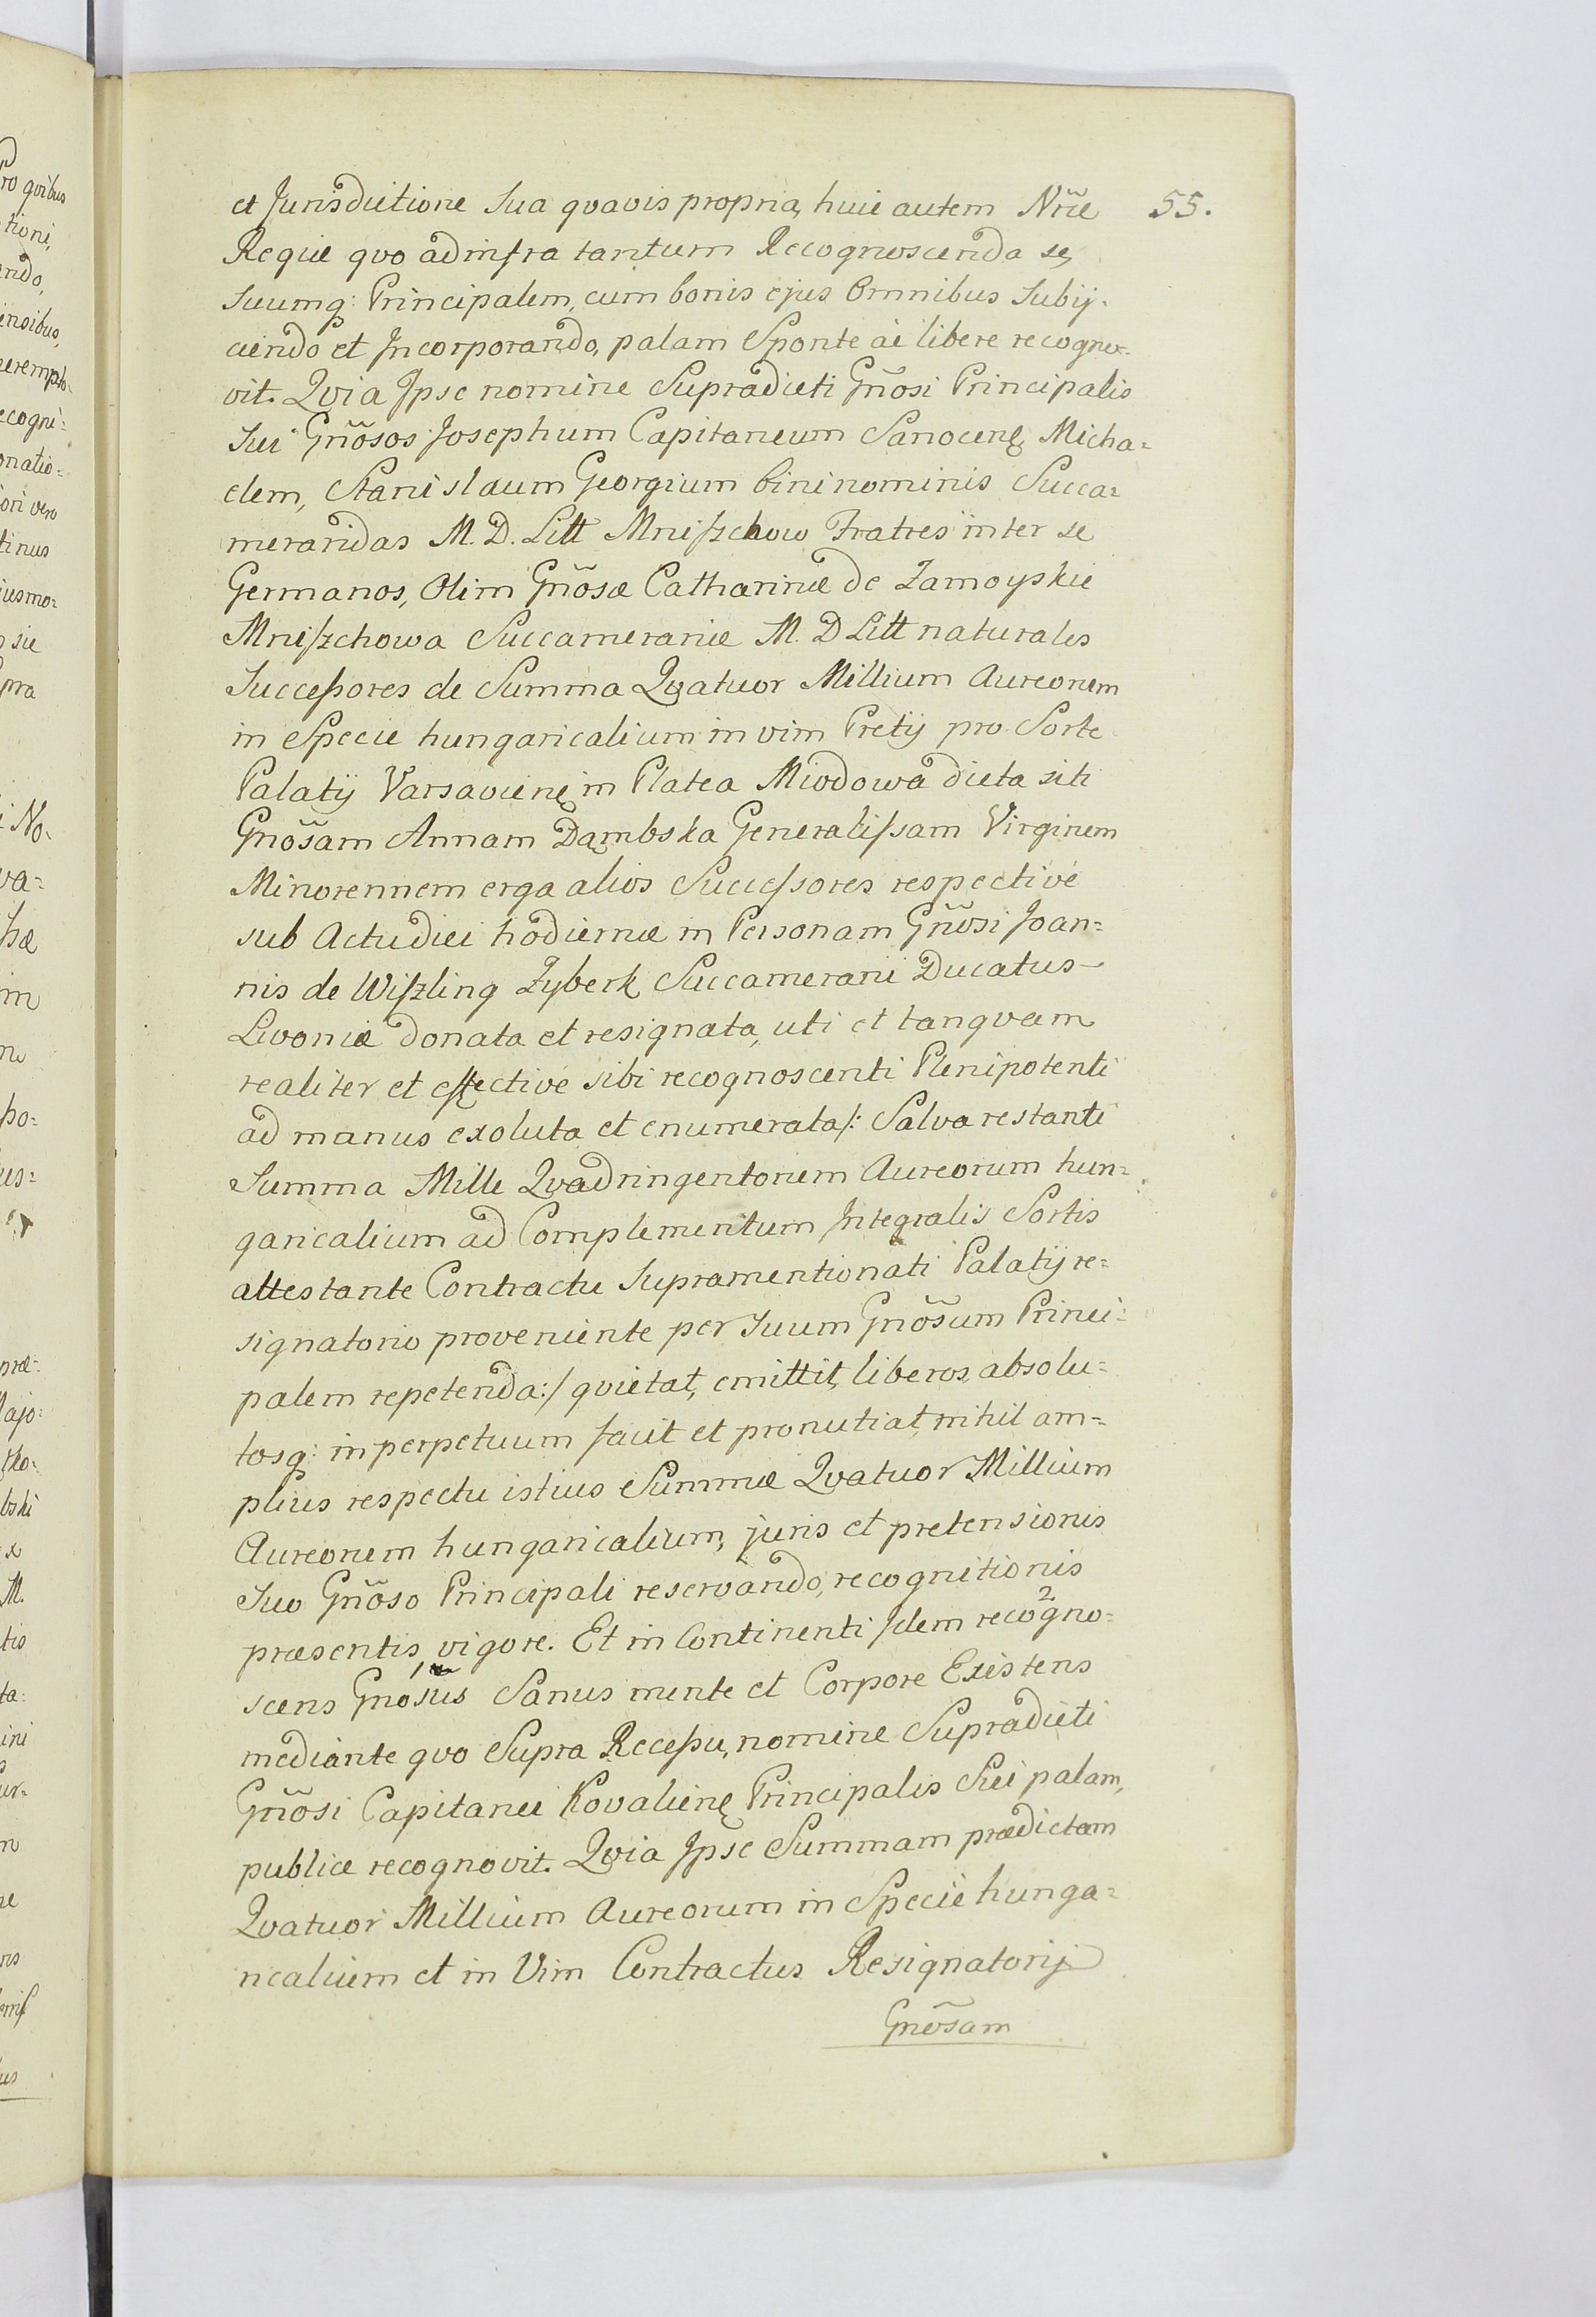 et Jurisdictione Sua qvavis propria, huic autem Nr̃æ 55.
Regiæ qvo ad infra tantum Recognoscenda se,
Suumq: Principalem, cum bonis ejus Omnibus Subij-
ciendo et Incorporando, palam Sponte ac libere recogno-
vit. Qvia Ipse nomine Supradicti Gñosi Principalis
Sui Gñosos Josephum Capitaneum Sanocenę, Micha=
elem, Stanislaum Georgium bini nominis Succa=
merandas M. D. Litt Mniszchow Fratres inter se
Germanos, Olim Gñosæ Catharinæ de Zamoyskie
Mniszchowa Succamerariæ M. D Litt naturales
Successores de Summa Qvatuor Millium Aureorum
in Specie hungaricalium in vim Pretij pro Sorte
Palatij Varsavienę in Platea Miodowa dicta siti
Gñosam Annam Dąmbska Generalissam Virginem
Minorennem erga alios Successores respectivé
sub Actu diei hodiernæ in Personam Gñosi Joan=
nis de Wiszling Zyberk Succamerarii Ducatus
Livoniæ donata et resignata, uti et tanqvam
realiter et effectivé sibi recognoscenti Plenipotenti
ad manus exoluta et enumerata /: Salva restanti
Summa Mille Qvadringentorum Aureorum hun=
garicalium ad Complementum Integralis Sortis
attestante Contractu Supramentionati Palatij re=
signatorio proveniente per Suum Gñosum Princi=
palem repetenda :/ qvietat, emittit, liberos, absolu=
tosq: in perpetuum facit et pronutiat, nihil am=
plius respectu istius Summæ Qvatuor Millium
Aureorum hungaricalium, juris et pretensionis
Suo Gñoso Principali reservando, recognitionis
præsentis vigore. Et in Continenti Idem 2 recogno=
scens Gñosus Sanus mente et Corpore Existens
mediante qvo Supra Recessu, nomine Supradicti
Gñosi Capitanei Kovalienę Principalis Sui palam,
publice recognovit. Qvia Ipse Summam prædictam
Qvatuor Millium Aureorum in Specie hunga=
ricalium et in Vim Contractus Resignatorij
Gñosam